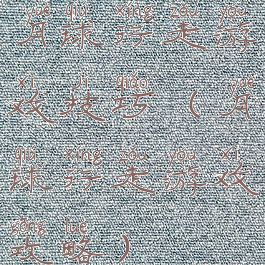 yuè qiú xíng zǒu yóu
月球行走游
xì jì qiǎo yuè
戏技巧(月
qiú xíng zǒu yóu xì
球行走游戏
gōng lüè
攻略)